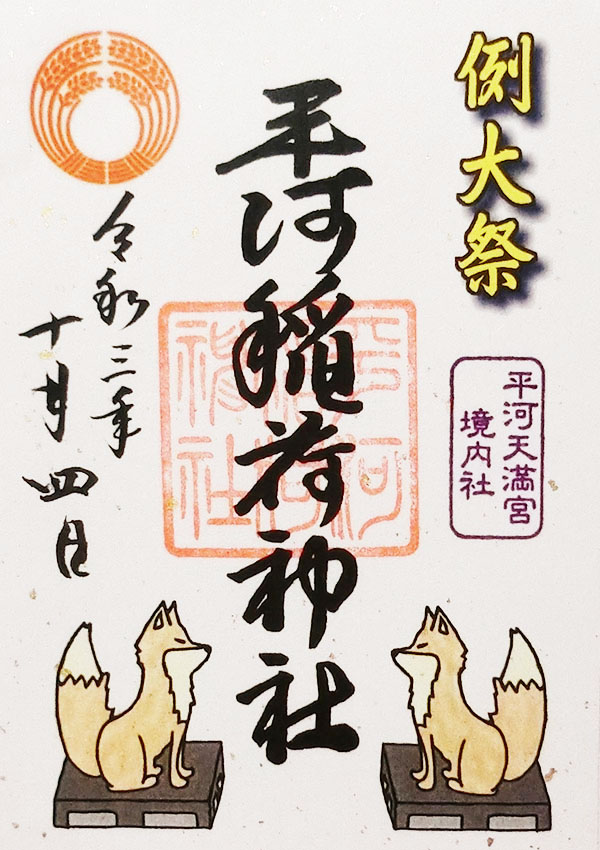 例大祭
平河天満宮
境内社
平河稲荷神社
平河稲荷神社
令和三年
十月四日